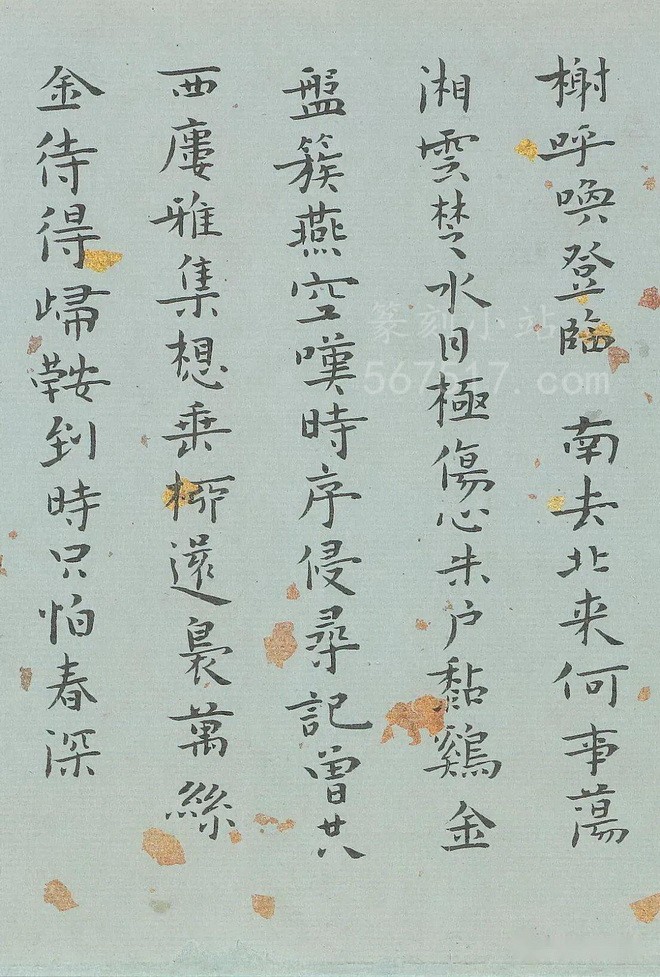 榭呼喚登臨　南去北来何事蕩
湘雲楚水目極傷心朱户黏鷄金
盤簇燕空嘆時序侵尋記曽共
西廔雅集想垂柳還裊萬絲
金待得歸鞍到時只怕春深
篆刻小站
567517.com